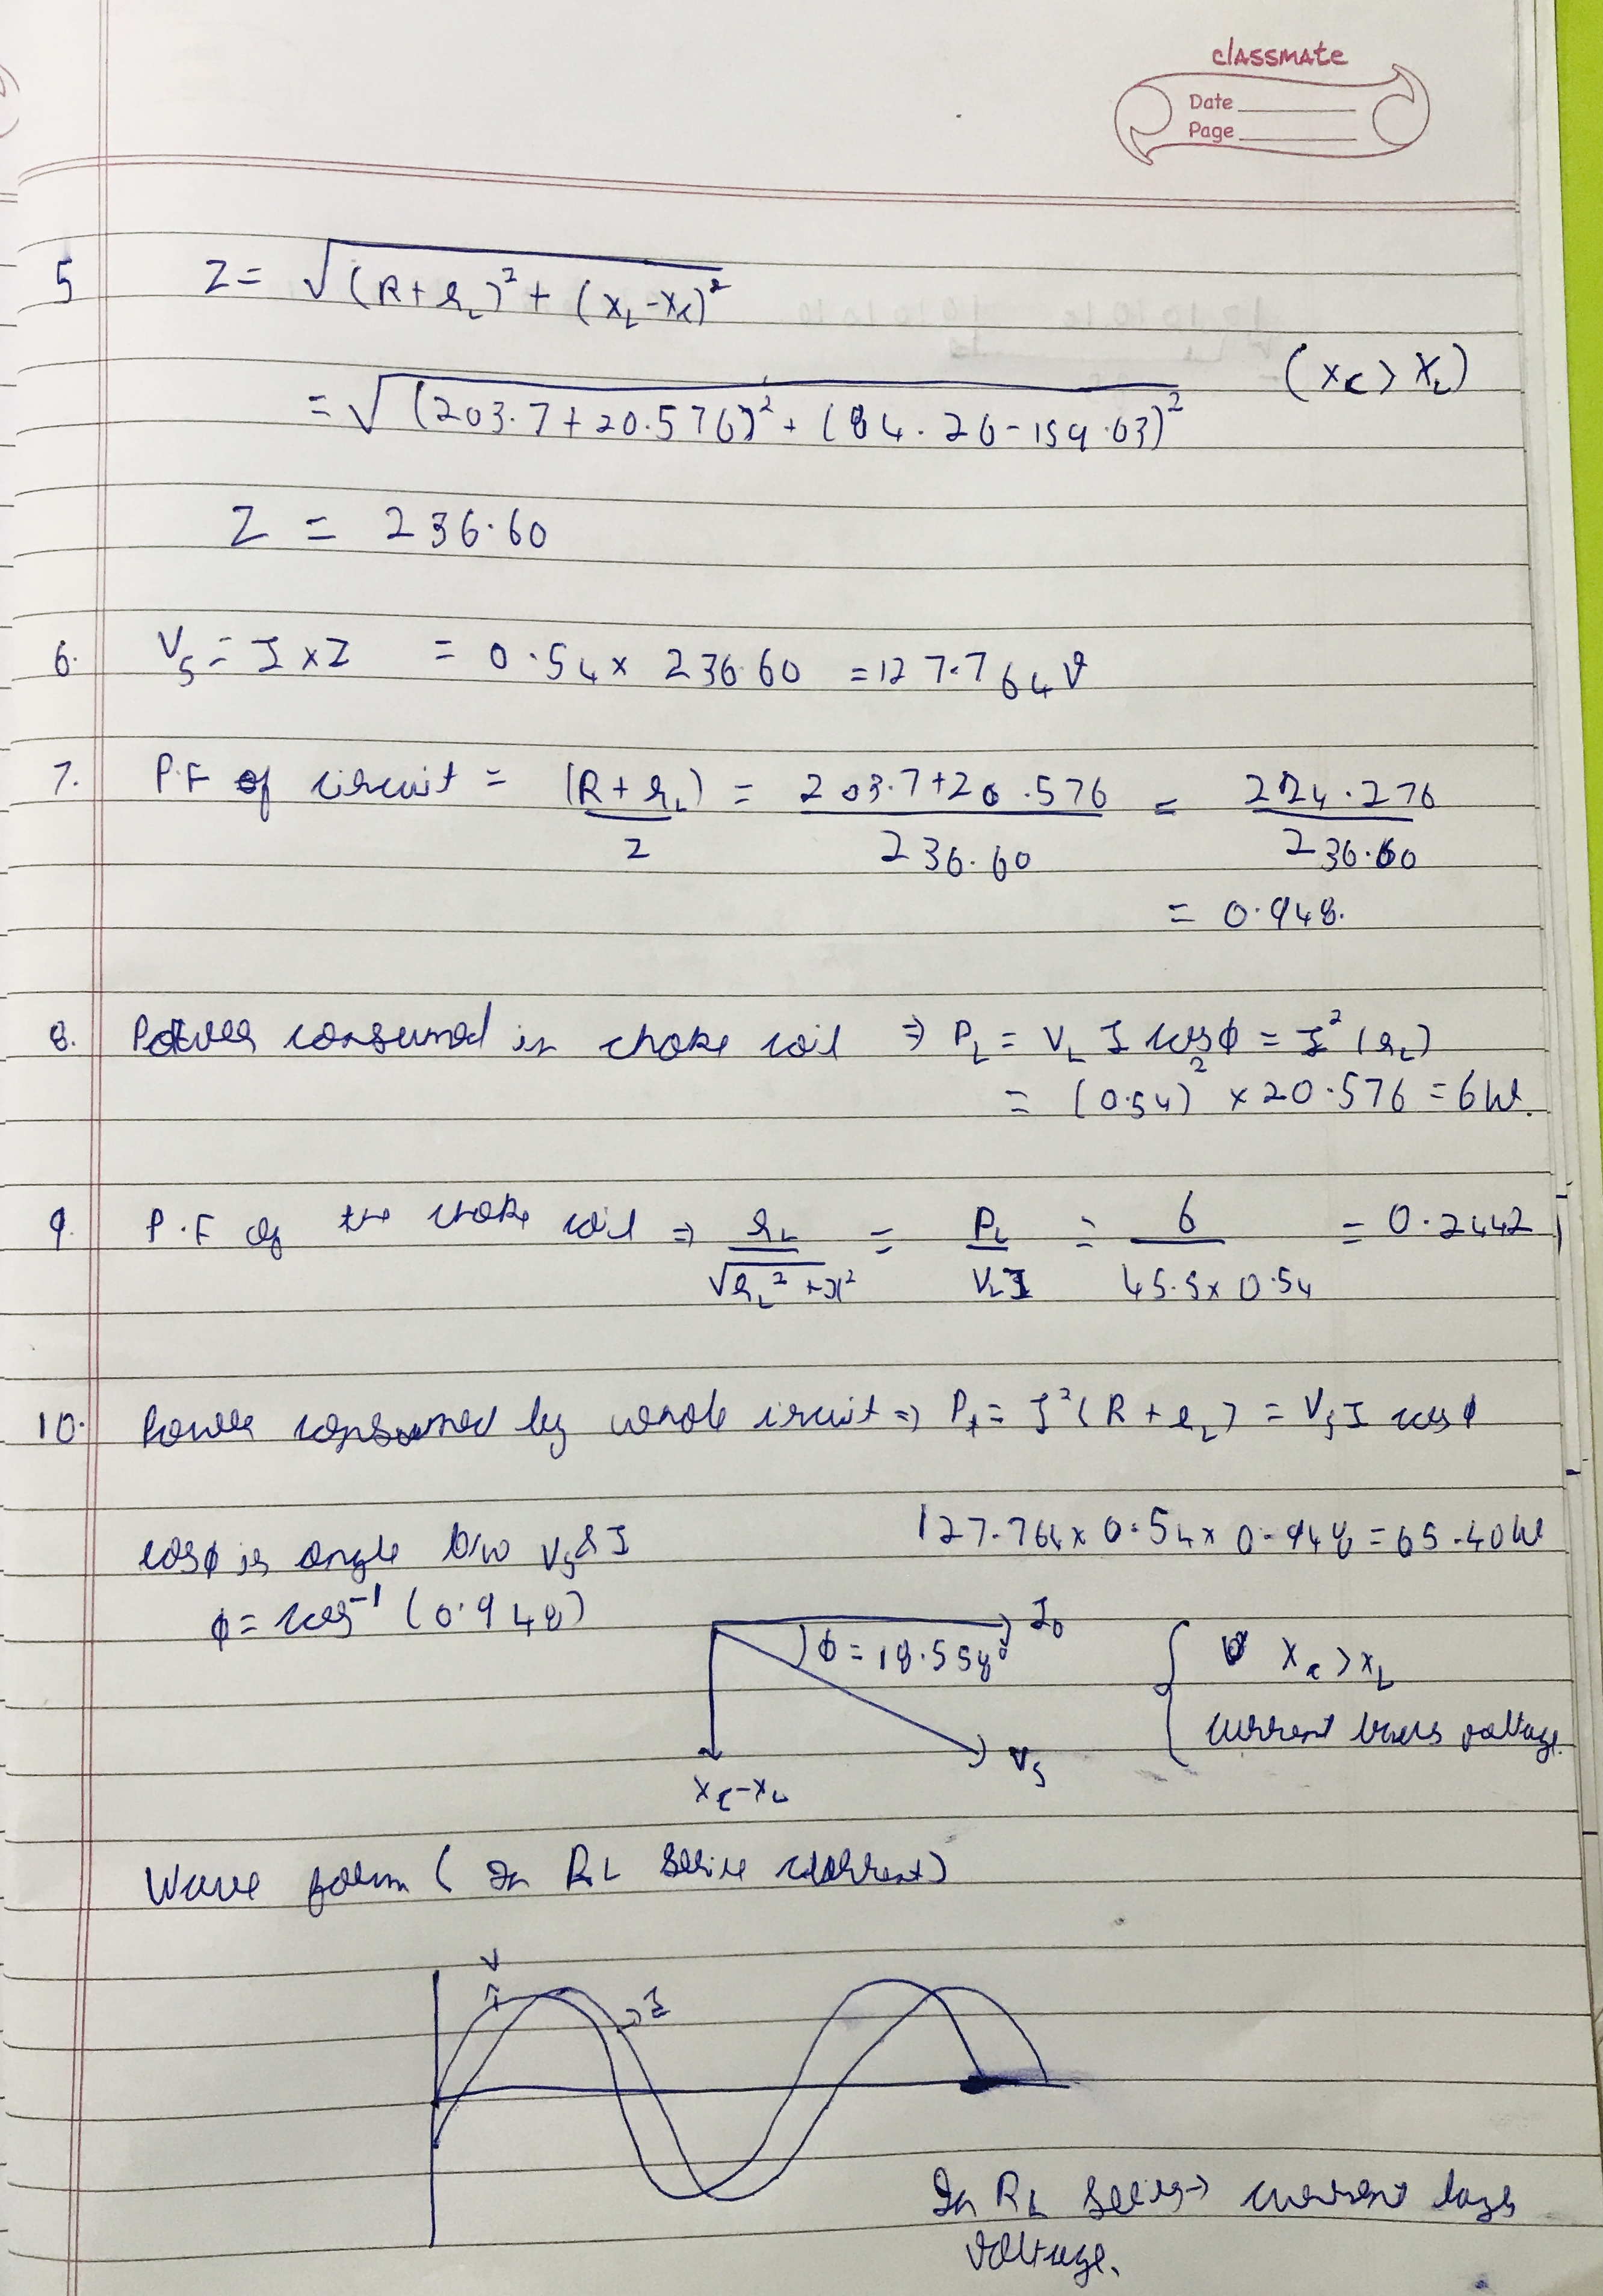 classmate
Date
Page
5 Z = √(R+r_L)² + (X_L-X_C)²
(X_C > X_L)
= √(203.7+20.576)² + (84.26-159.63)²
Z = 236.60
6. V_S = I x Z = 0.54 x 236.60 = 127.764 V
7. P.F of circuit = (R+r_L)/Z = 203.7+20.576/236.60 = 224.276/236.60
= 0.948.
8. Power consumed in choke coil ⇒ P_L = V_L I cosϕ = I²(r_L)
= (0.54)² x 20.576 = 6W.
9. P.F of the choke coil ⇒ r_L/√r_L²+x² = P_L/V_L I = 6/45.5 x 0.54 = 0.2442
10. Power consumed by whole circuit ⇒ P_t = I²(R+r_L) = V_S I cosϕ
127.764 x 0.54 x 0.948 = 65.40W
cosϕ is angle b/w V_S & I
ϕ = cos⁻¹(0.948)
I_0
ϕ = 18.558°
X_C > X_L
current leads voltage.
V_S
X_C-X_L
Wave form (In RL Serie )
V
I
In RL Series → current lags
voltage.